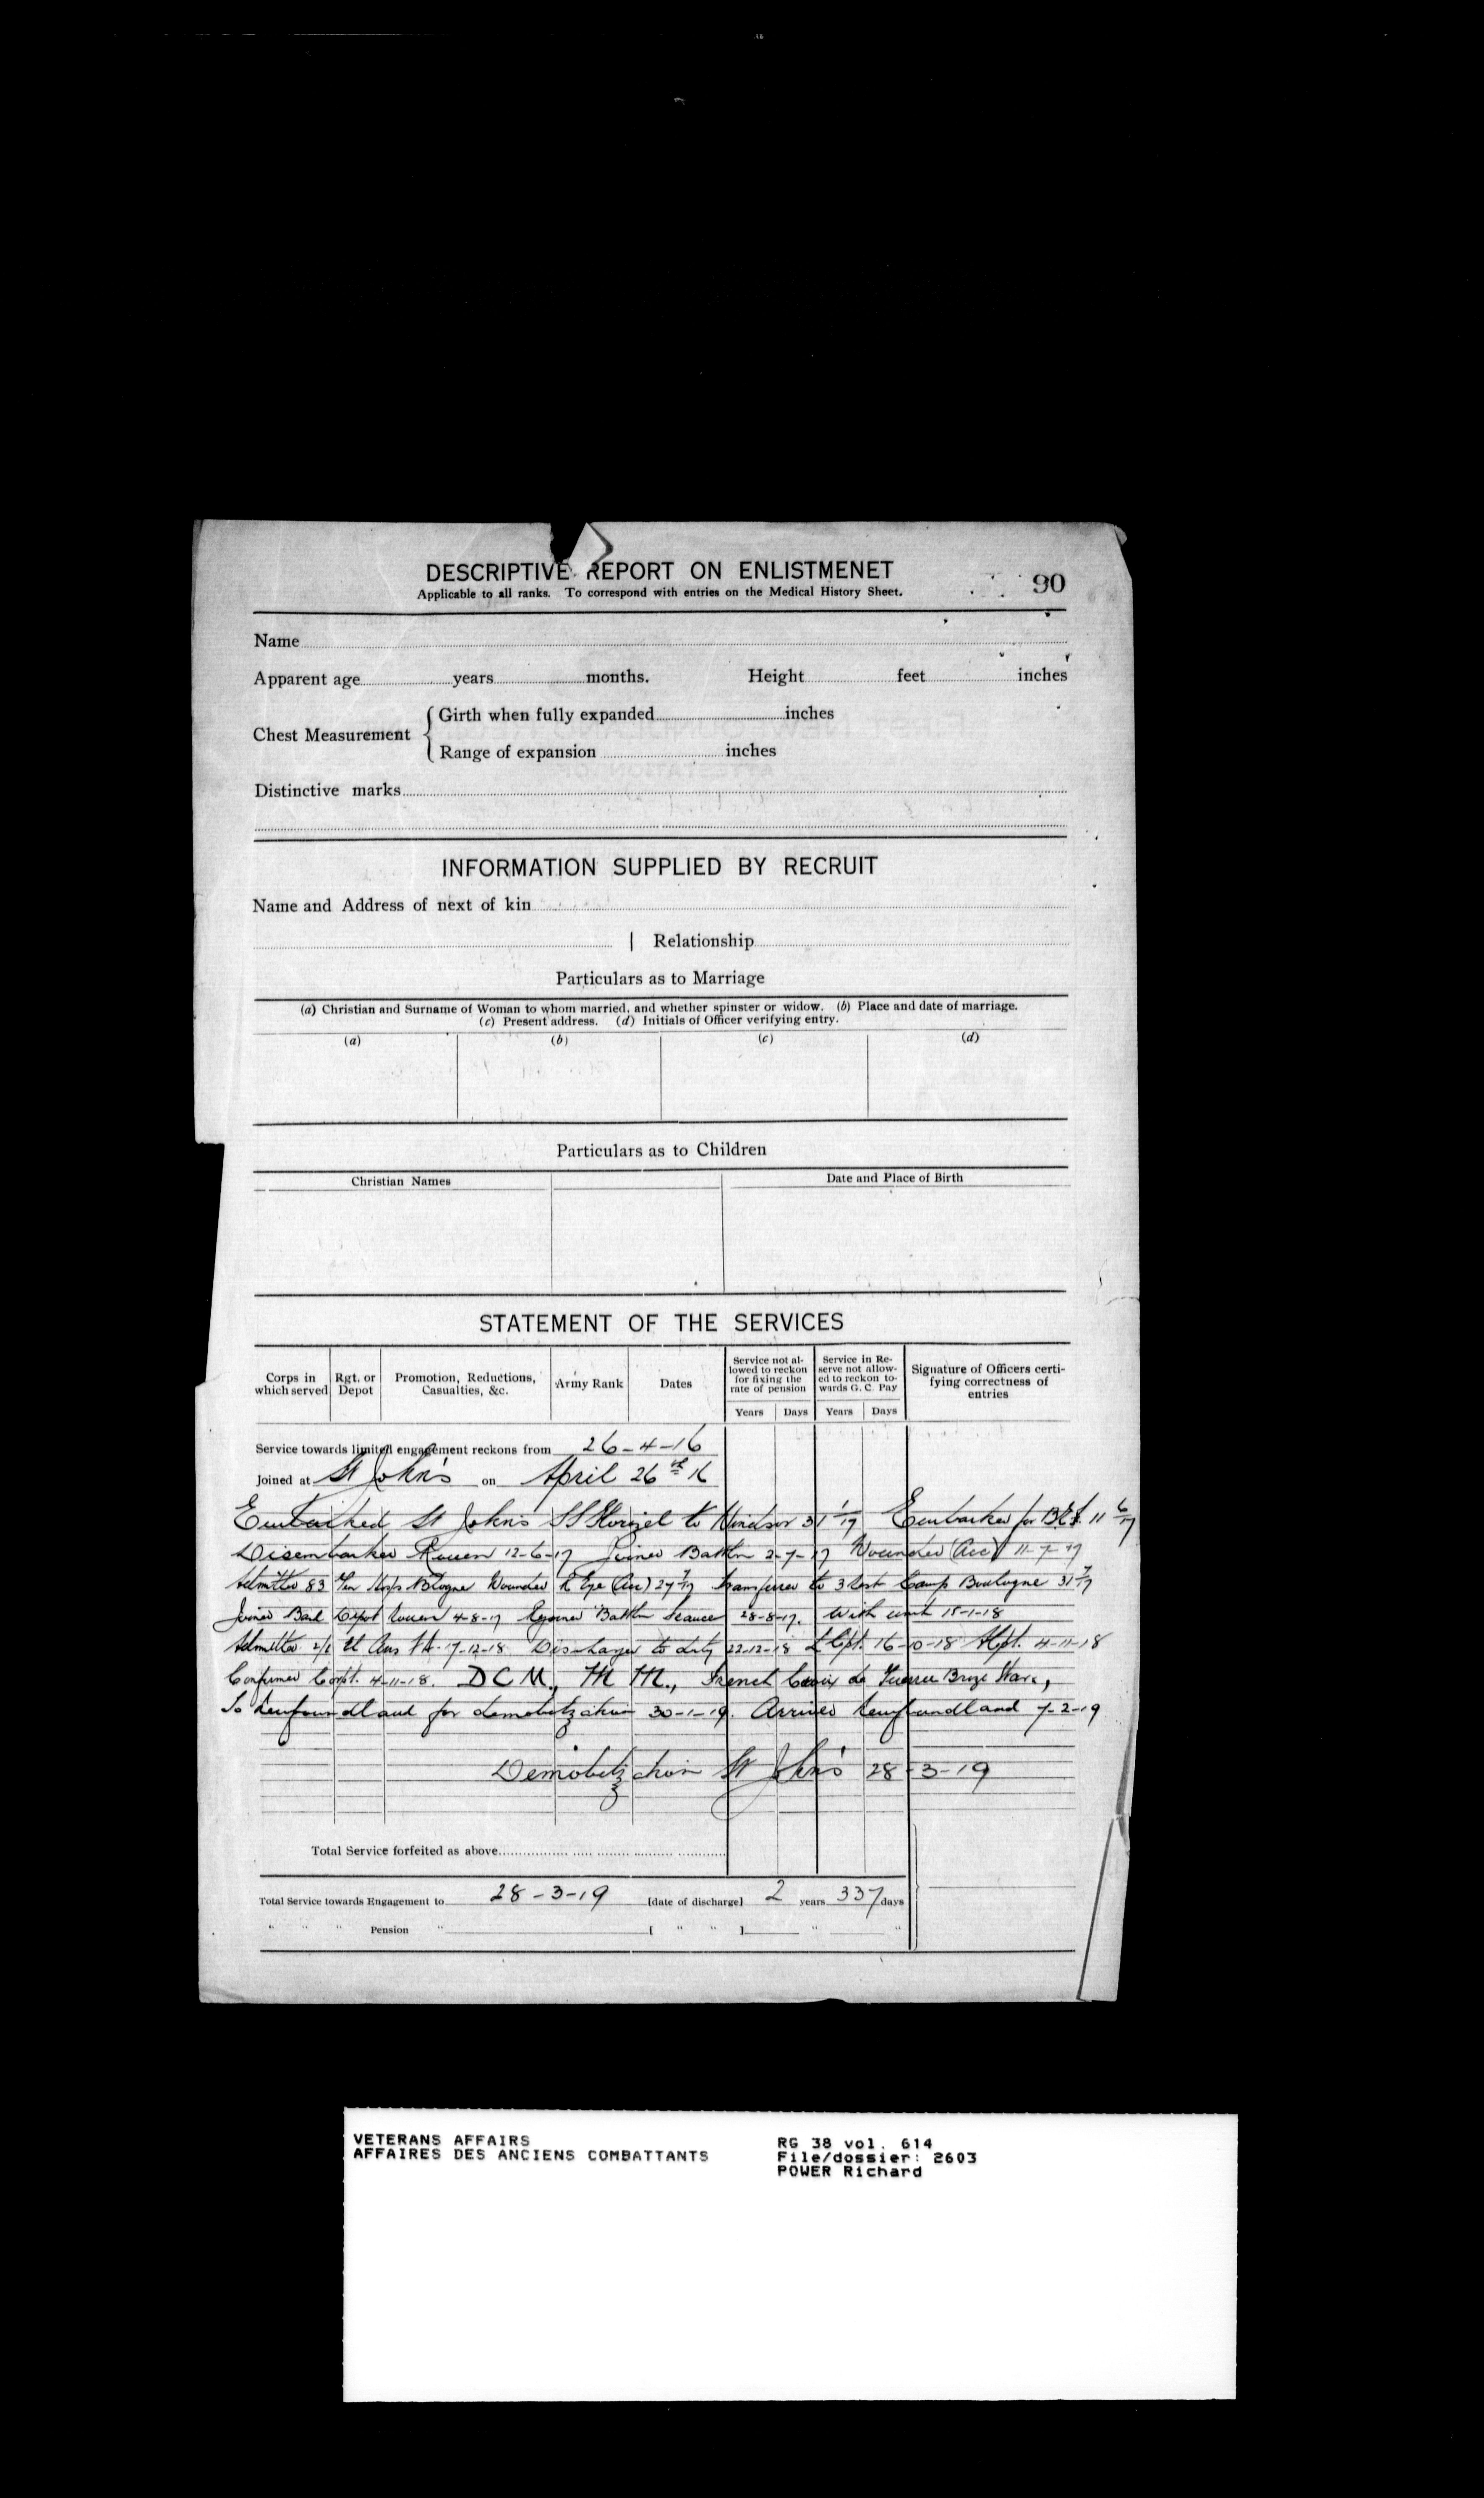 DESCRIPTIVE REPORT ON ENLISTMENET
90
Applicable to all ranks. To correspond with entries on the Medical History Sheet.
Name
Apparent age years months. Height feet inches
Girth when fully expanded inches
Chest Measurement
Range of expansion inches
Distinctive marks
INFORMATION SUPPLIED BY RECRUIT
Name and Address of next of kin
Relationship
Particulars as to Marriage
(a) Christian and Surname of Woman to whom married, and whether spinster or widow. (b) Place and date of marriage.
(c) Present address. (d) Initials of Officer verifying entry.
(a) (b) (c) (d)
Particulars as to Children
Christian Names Date and Place of Birth
STATEMENT OF THE SERVICES
Corps in which served Rgt. or Depot Promotion, Reductions, Casualties, &c. Army Rank Dates Service not allowed to reckon for fixing the rate of pension Service in Reserve not allowed to reckon towards G. C. Pay Signature of Officers certifying correctness of entries
Years Days Years Days
Service towards limited engagement reckons from 26-4-16
Joined at St John's on April 26th 16
Embarked St John's SS Florizel to Windsor 31 1/17 Embarked for B.E.F. 11 6/17
Disembarked Rouen 12-6-17 Joined Battln 2-7-17 Wounded (Acc) 11-7-17
Admitted 83 Gen Hosp Blogne Wounded R Eye (Acc) 27 7/17 transferred to 3 Rest Camp Boulogne 31 7/17
Joined Base Depot Rouen 4-8-17 Rejoined Battln 28-8-17. With unit 18-1-18
Admitted 17-12-18 Discharged to duty 22-12-18 L Cpl. 16-10-18 4-11-18
Confirmed Corpl. 4-11-18. D C M., M M., French Croix de Guerre Brnze Star,
To Newfoundland for demobilization 30-1-19. Arrived Newfundland 7-2-19
Demobilization St John's 28-3-19
Total Service forfeited as above
Total Service towards Engagement to 28-3-19 [date of discharge] 2 years 337 days
" " " Pension " [ " " ] " "
VETERANS AFFAIRS
AFFAIRES DES ANCIENS COMBATTANTS
RG 38 vol. 614
File/dossier: 2603
POWER Richard